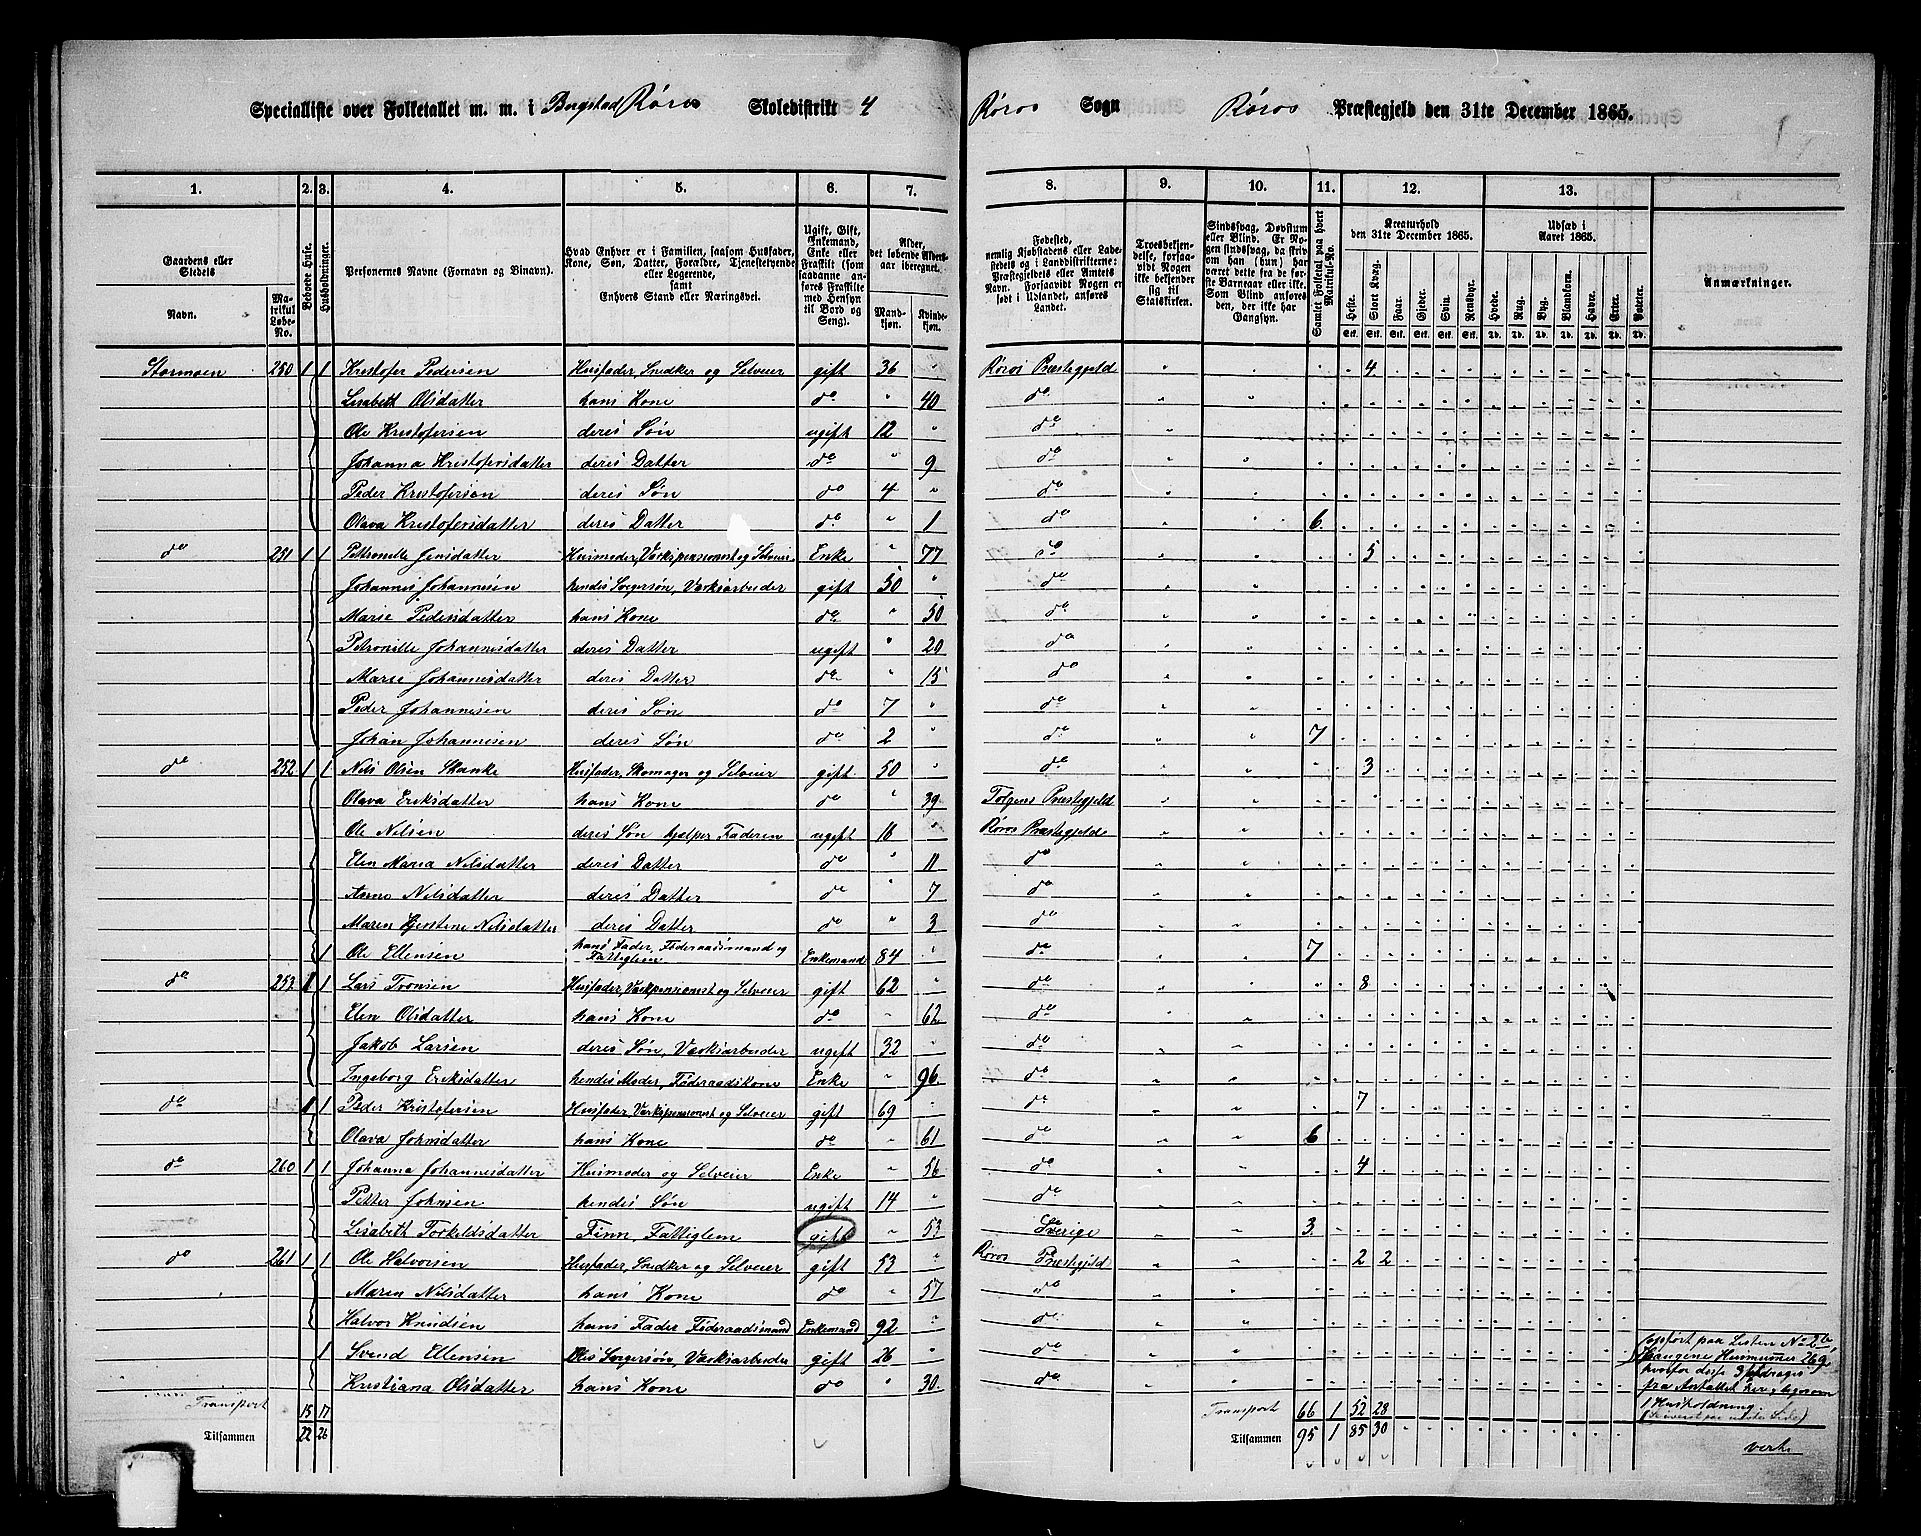 Specialliste over Folketallet m. m. i Bergstad Røros Skoledistrikt 4 Røros Sogn Røros Præstegjeld den 31te December 1865.
1. 2. 3. 4. 5. 6. 7. 8. 9. 10. 11. 12. 13.
Gaardens eller Stedets
Navn. Matrikul Løbe-No.
Beboede Huse.
Husholdninger.
Personernes Navne (Fornavn og Binavn).
Hvad Enhver er i Familien, saasom Husfader, Kone, Søn, Datter, Forældre, Tjenestetyende eller Logerende, samt Enhvers Stand eller Næringsvei.
Ugift, Gift, Enkemand, Enke eller Fraskilt (som saadanne anføres Fraskilte med Hensyn til Bord og Seng).
Alder, det løbende Aldersaar iberegnet.
Mandkjøn. Kvindekjøn.
Fødested, nemlig Kjøbstadens eller Ladestedets og i Landdistrikterne: Præstegjeldets eller Amtets Navn. Forsaavidt Nogen er født i Udlandet, anføres Landet.
Troesbekjendelse, forsaavidt Nogen ikke bekjender sig til Statskirken.
Sindssvag, Døvstum eller Blind. Er Nogen sindssvag, da skrives om han (hun) har været dette fra de første Barneaar eller ikke. Som Blind anføres den, der ikke har Gangsyn.
Samlet Folketal paa hvert Matrikul-No.
Kreaturhold den 31te December 1865.
Heste. Stort Kvæg. Faar. Gjeder. Svin. Rensdyr.
Udsæd i Aaret 1865.
Hvede. Rug. Byg. Blandkorn. Havre. Erter. Poteter.
Anmærkninger.
Stormoen 250 1 1 Kristofer Pedersen Husfader, Snedker og Selveier gift 36 " Røros Præstegjeld 4
Lisabeth Olsdatter hans Kone do " 40 do
Ole Kristofersen deres Søn ugift 12 " do
Johanna Kristofersdatter deres Datter do " 9 do
Peder Kristofersen deres Søn do 4 " do
Olava Kristofersdatter deres Datter do " 1 do 6
do 251 1 1 Petronille Jensdatter Husmoder, Værkspensionist og Selveier Enke " 77 do 5
Johannes Johannesen hendes Svigersøn, Værksarbeider gift 50 " do
Marse Pedersdatter hans Kone do " 50 do
Petronille Johannesdatter deres Datter ugift " 20 do
Marse Johannesdatter deres Datter do " 15 do
Peder Johannesen deres Søn do 7 " do
Johan Johannesen deres Søn do 2 " do 7
do 252 1 1 Nils Olsen Skanke Husfader, Skomager og Selveier gift 50 " do 3
Olava Eriksdatter hans Kone do " 39 Tolgens Præstegjeld
Ole Nilsen deres Søn hjelper Faderen ugift 16 " Røros Præstegjeld
Elen Maria Nilsdatter deres Datter do " 11 do
Anne Nilsdatter deres Datter do " 7 do
Maren Kjerstine Nilsdatter deres Datter do " 3 do
1 Ole Ellensen hans Fader, Føderaadsmand og Fattiglem Enkemand 84 do 7
do 253 1 1 Lars Tronsen Husfader, Værkpensionist og Selveier gift 62 " do 8
Elen Olsdatter hans Kone do " 62 do
Jakob Larsen deres Søn, Værksarbeider ugift 32 " do
Ingeborg Eriksdatter hendes Moder, Føderaadskone Enke " 96 do
do 1 1 Peder Kristofersen Husfader, Værkspensionist og Selveier gift 69 " do 7
Olava Johnsdatter hans Kone do " 61 do 6
do 260 1 1 Johanna Johannesdatter Husmoder og Selveier Enke " 56 do 4
Petter Johnsen hendes Søn ugift 14 " do
Lisabeth Torkeldsdatter Finn, Fattiglem gift " 53 Sverige 3
do 261 1 1 Ole Halvorsen Husfader, Snedker og Selveier gift 53 " Røros Præstegjeld 2 2
Maren Nilsdatter hans Kone do " 57 do
Halvor Knudsen hans Fader Føderaadsmand Enkemand 92 " do
1 Svend Ellensen Oles Svigersøn, Værksarbeider gift 26 " do
Kristiana Olsdatter hans Kone do " 30 do
opført paa Listen No 26
Haugene Husnumer 269,
hvorfor disse 3 fradrages
fra Antallet her, ligesom
1 Husholdning
Transport 15 17 Transport 66 1 52 28
Tilsammen 22 26 Tilsammen 95 1 85 30
verte